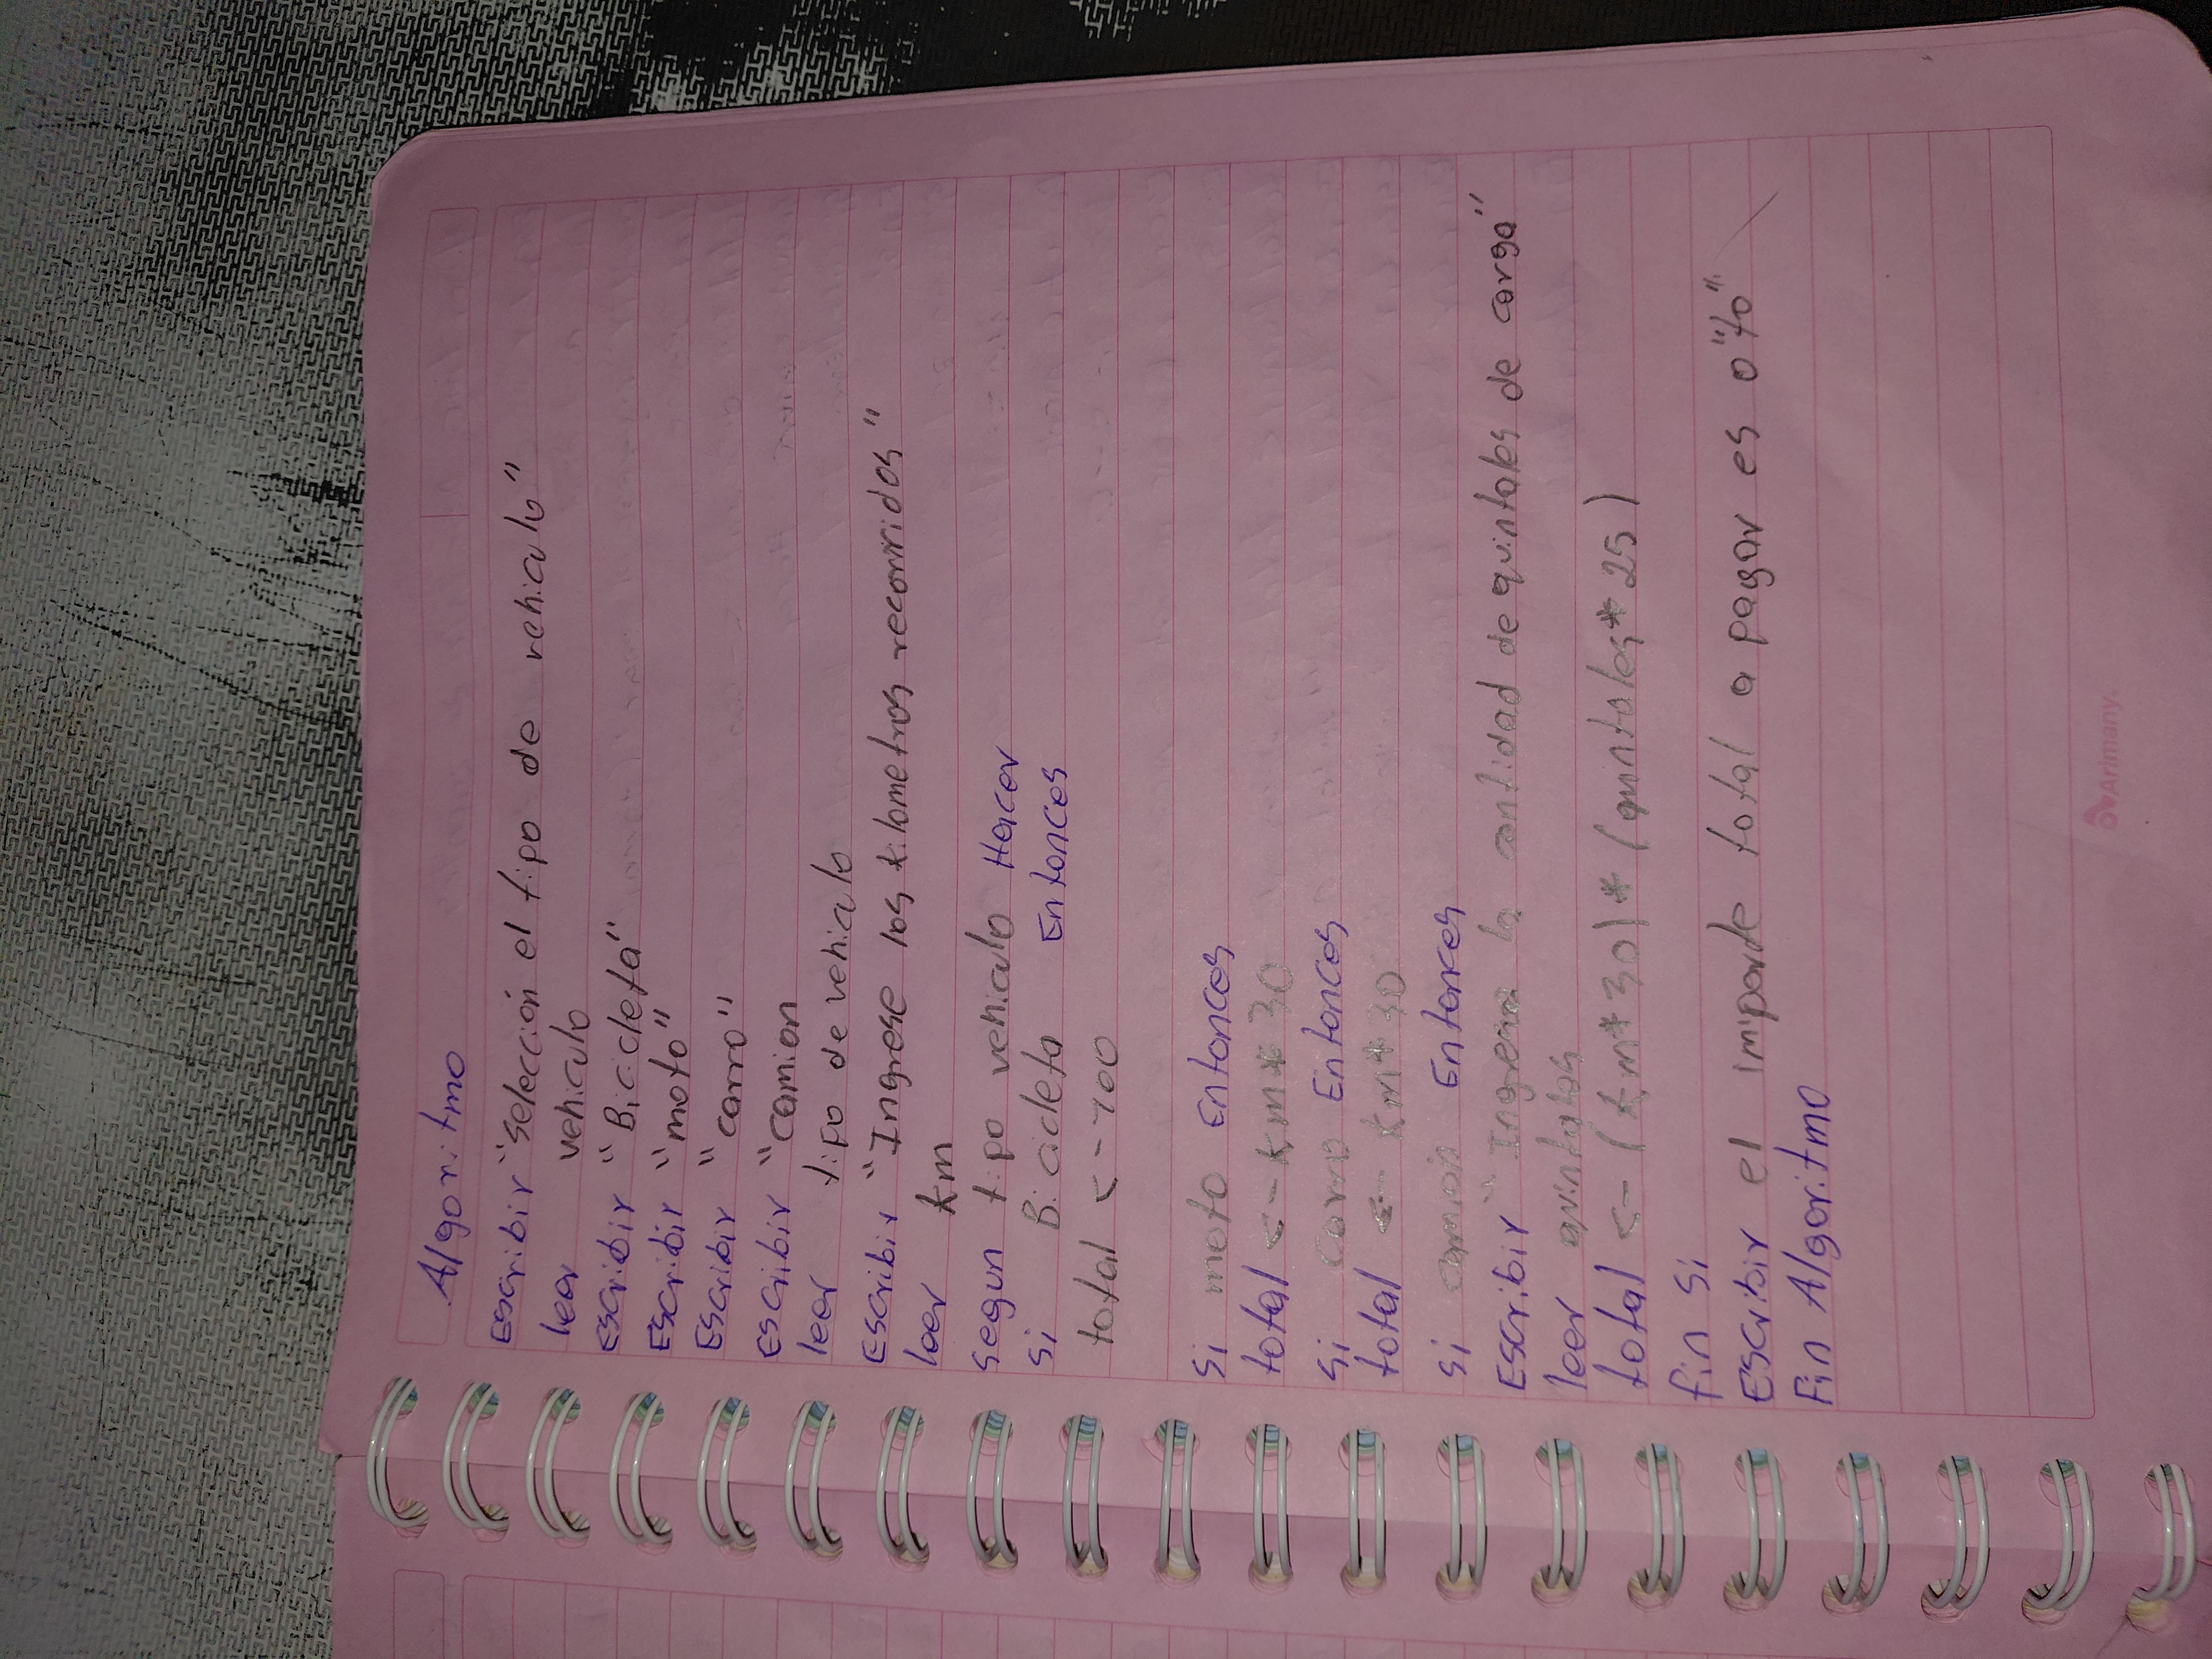 Algoritmo
Escribir "Selección el tipo de vehiculo"
leer vehiculo
Escribir "Bicicleta"
Escribir "moto"
Escribir "carro"
Escribir "camion
leer tipo de vehiculo
Escribir "Ingrese los kilometros recorridos"
leer km
segun tipo vehiculo Hacer
si Bicicleta Entonces
total <- 100
si moto Entonces
total <- km * 30
si carro Entonces
total <- km * 30
si camion Entonces
Escribir "Ingrese la cantidad de quintales de carga"
leer quintales
total <- (km * 30) * (quintales * 25)
fin si
Escribir el importe total a pagar es 0"%"
Fin Algoritmo
Arimany